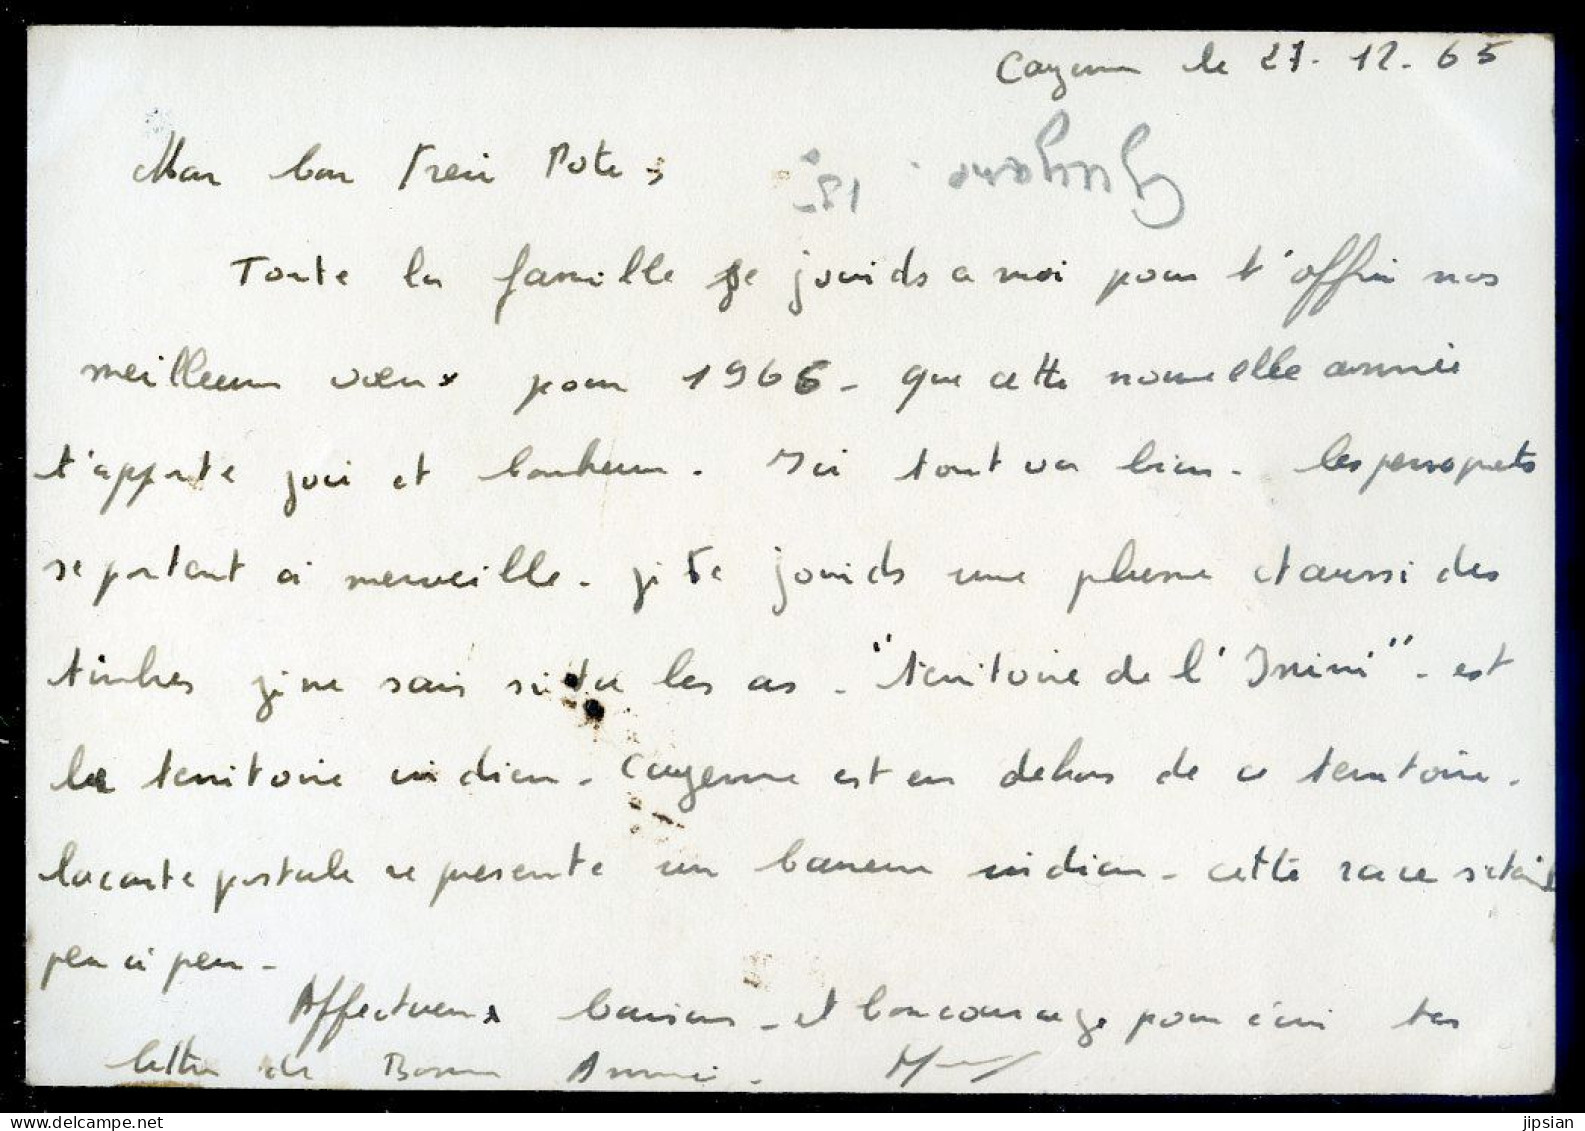 Cayenne le 27.12.65
Mon bon Frere Pote,
Guyane. 15
Toute la famille se joinds a moi pour t'offrir nos
meilleurs voeux pour 1966 - que cette nouvelle année
t'apporte joie et bonheur. Ici tout va bien. les perroquets
se portent à merveille. je te joinds une plume et aussi des
timbres je ne sais si tu les as. "territoire de l'Inini". est
le territoire indien. Cayenne est en dehors de ce territoire.
la carte postale represente un baneur indien. cette race s'etaint
peu à peu.
Affectueux baisers. et bon courage pour écrire tes
lettres de Bonne Année.
www.delcampe.net jipsian